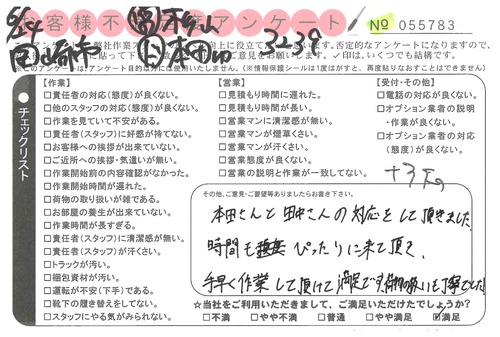 お客様不満足度アンケート
No 055783
6/24
岡崎市
3-2-39
このアンケートは、アンケート目的以外には使用いたしません。（※情報保護シールは1度はがすと、再度貼りなおすことはできません）
チェックリスト
【作業】
□責任者の対応（態度）が良くない。
□他のスタッフの対応（態度）が良くない。
□作業を見ていて不安がある。
□責任者（スタッフ）に好感が持てない。
□お客様への挨拶が出来ていない。
□ご近所への挨拶・気遣いが無い。
□作業開始前の内容確認がなかった。
□作業開始時間が遅れた。
□荷物の取り扱いが雑である。
□お部屋の養生が出来ていない。
□作業時間が長すぎる。
□責任者（スタッフ）に清潔感が無い。
□責任者（スタッフ）が汗くさい。
□トラックが汚い。
□梱包資材が汚い。
□運転が不安（下手）である。
□靴下の履き替えをしてない。
□スタッフにやる気がみられない。
【営業】
□見積もり時間に遅れた。
□見積もり時間が長い。
□営業マンに清潔感が無い。
□営業マンが煙草くさい。
□営業マンが汗くさい。
□営業態度が良くない。
□営業の説明と作業が一致してない。
【受付・その他】
□電話の対応が良くない。
□オプション業者の説明
・作業が良くない。
□オプション業者の対応
（態度）が良くない。
その他、ご意見・ご要望等ありましたらお書き下さい。
本田さんと田中さんの対応をして頂きました。
時間もぴったりに来て頂き、
手早く作業して頂けて満足です。荷物の扱いも丁寧でした!
☆当社をご利用いただきまして、ご満足いただけたでしょうか？
□不満 □やや不満 □普通 □やや満足 ☑満足